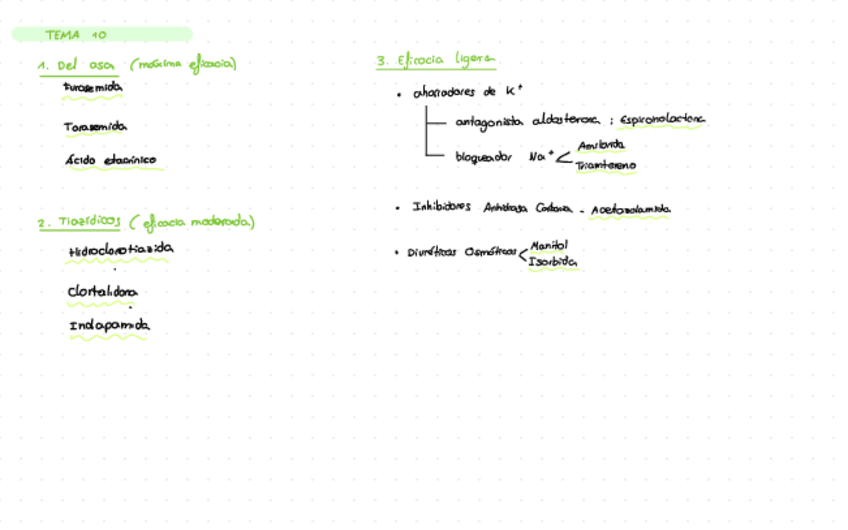 TEMA 10
1. Del asa (máxima eficacia)
Furosemida
Torasemida
Ácido etacrínico
2. Tiazídicos (eficacia moderada)
Hidroclorotiazida
Clortalidona
Indapamida
3. Eficacia ligera
• ahorradores de K+
antagonista aldosterona : Espironolactona
bloqueador Na+ < Amilorida
Triamtereno
• Inhibidores Anhidrasa Carbónica - Acetazolamida
• Diuréticos Osmóticos < Manitol
Isorbida